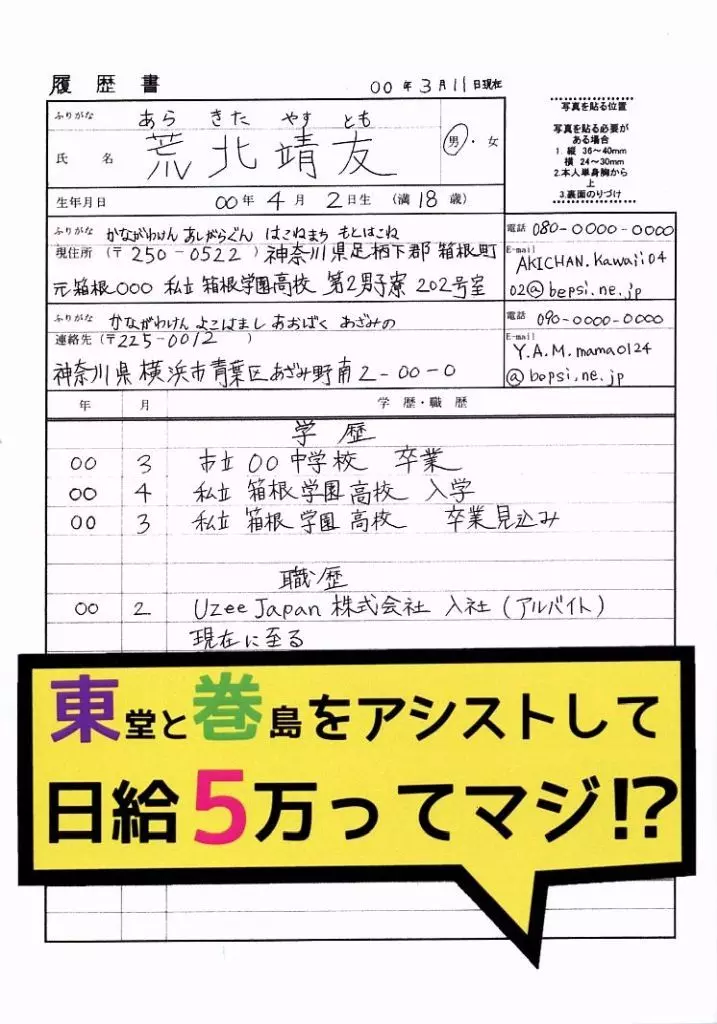 履歴書
00年3月11日現在
ふりがな あら きた やす とも
氏名 荒北靖友
男・女
生年月日 00年4月2日生 (満18歳)
写真を貼る位置
写真を貼る必要が
ある場合
1. 縦 36〜40mm
横 24〜30mm
2.本人単身胸から
上
3.裏面のりづけ
ふりがな かながわけん あしがらぐん はこねまち もとはこね
現住所 (〒250-0522) 神奈川県足柄下郡箱根町
元箱根000 私立 箱根学園高校 第2男子寮 202号室
電話 080-0000-0000
E-mail
AKICHAN.Kawaii04
02@bepsi.ne.jp
ふりがな かながわけん よこはまし あおばく あざみの
連絡先 (〒225-0012 )
神奈川県横浜市青葉区あざみ野南2-00-0
電話 090-0000-0000
E-mail
Y.A.M.mama0124
@bepsi.ne.jp
年 月 学歴・職歴
学歴
00 3 市立00中学校 卒業
00 4 私立 箱根学園高校 入学
00 3 私立 箱根学園高校 卒業見込み
職歴
00 2 Uzee Japan 株式会社 入社(アルバイト)
現在に至る
東堂と巻島をアシストして
日給5万ってマジ!?